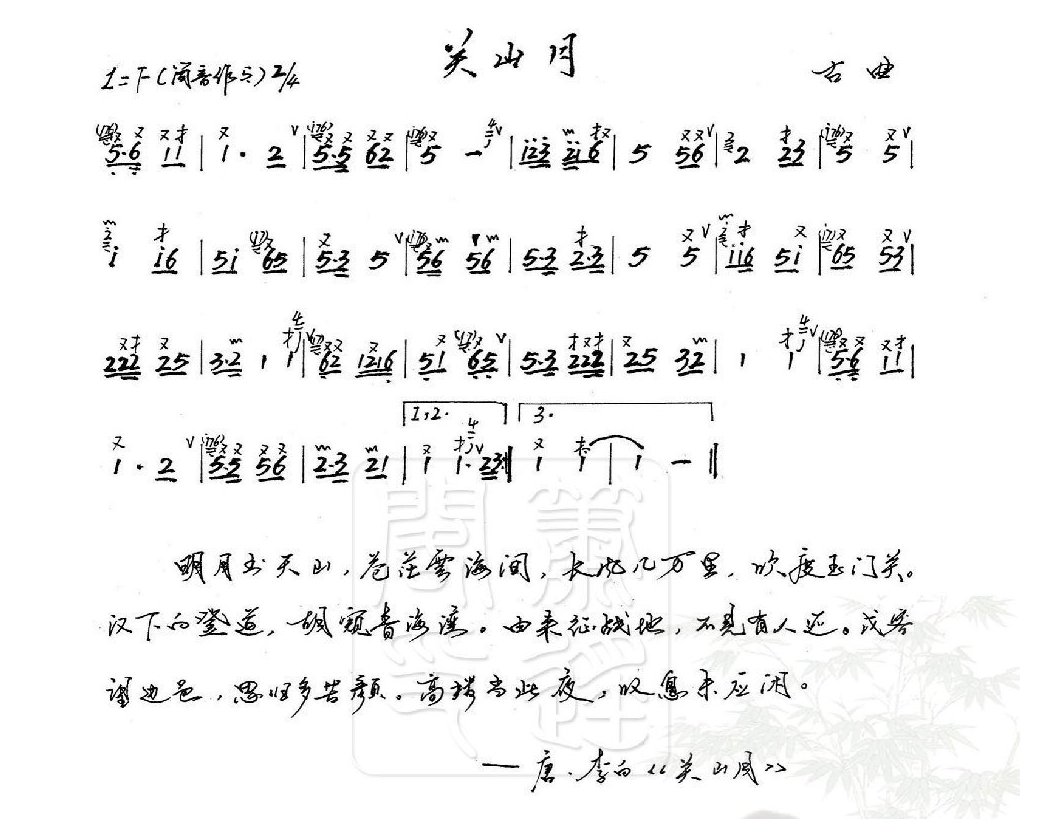 关山月
1=F(筒音作5) 2/4
古曲
5·6 11 | 1· 2 | 5·5 62 | 5 — | 123 216 | 5 56 | 2 23 | 5 5 |
1 16 | 51 65 | 5·3 5 | 56 56 | 5·3 2·3 | 5 5 | 116 51 | 65 53 |
222 25 | 3·2 1 1 | 62 1216 | 51 65 | 5·3 222 | 25 32 | 1 1 | 5·6 11 |
1,2. 3.
1· 2 | 5·5 56 | 2·3 21 | 1 1·23 | 1 1 | 1 — ||
明月出天山，苍茫雲海间，长风几万里，吹度玉门关。
汉下白登道，胡窥青海湾。由来征战地，不见有人还。戍客
望边邑，思归多苦颜。高楼当此夜，叹息未应闲。
——唐·李白《关山月》